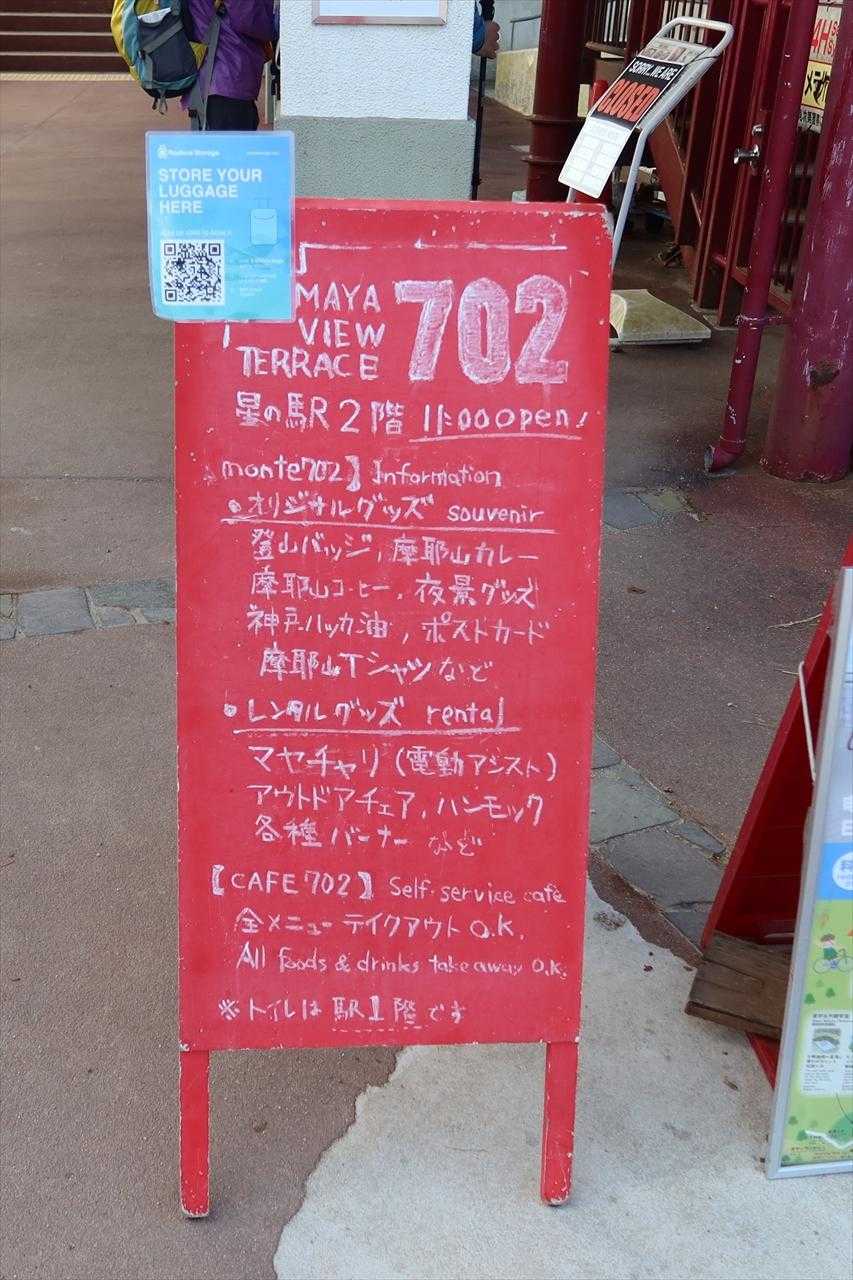 STORE YOUR
LUGGAGE
HERE
SORRY, WE ARE
CLOSED
MAYA
VIEW
TERRACE
702
星の駅2階 11:00 open!
monte702】Information
・オリジナルグッズ souvenir
登山バッジ, 摩耶山カレー
摩耶山コーヒー, 夜景グッズ
神戸ハッカ油, ポストカード
摩耶山Tシャツなど
・レンタルグッズ rental
マヤチャリ(電動アシスト)
アウトドアチェア, ハンモック
各種バーナーなど
【CAFE702】Self-service cafe
全メニューテイクアウトO.K.
All foods & drinks take away O.K.
※トイレは駅1階です